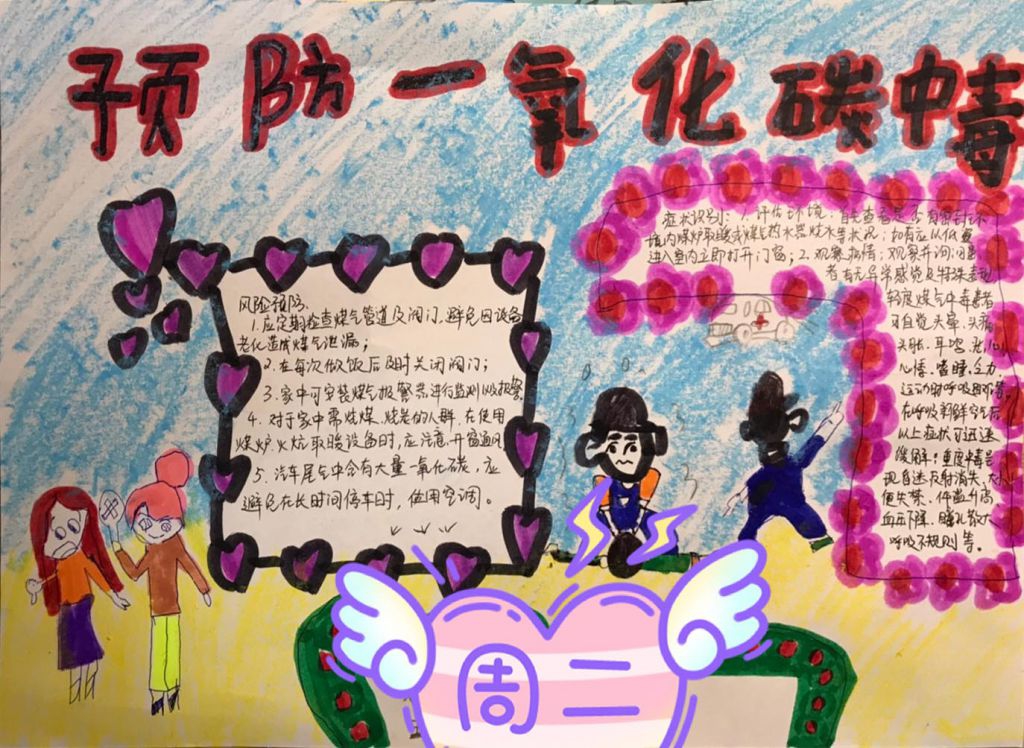 预防一氧化碳中毒
风险预防:
1.应定期检查煤气管道及阀门,避免因设备
老化造成煤气泄漏;
2.在每次做饭后及时关闭阀门;
3.家中可安装煤气报警器进行监测以报警
4.对于家中需烧煤、烧炭的人群,在使用
煤炉、火炕取暖设备时,应注意开窗通风
5.汽车尾气中含有大量一氧化碳,应
避免在长时间停车时,使用空调。
症状识别:1.评估环境:首先查看是否有密封环
境内煤炉取暖或煤气热水器烧水等状况;如有应从低
进入室内立即打开门窗;2.观察病情:观察并询问患
者有无异常感觉及特殊表现
轻度煤气中毒患者
可自觉头晕、头痛
头胀、耳鸣、恶心
心悸、嗜睡、乏力,
运动时呼吸困难。
在呼吸新鲜空气后
以上症状可迅速
缓解;重度中毒会
现昏迷反射消失、大小
便失禁、体温升高
血压下降、瞳孔散大、
呼吸不规则等。
周二